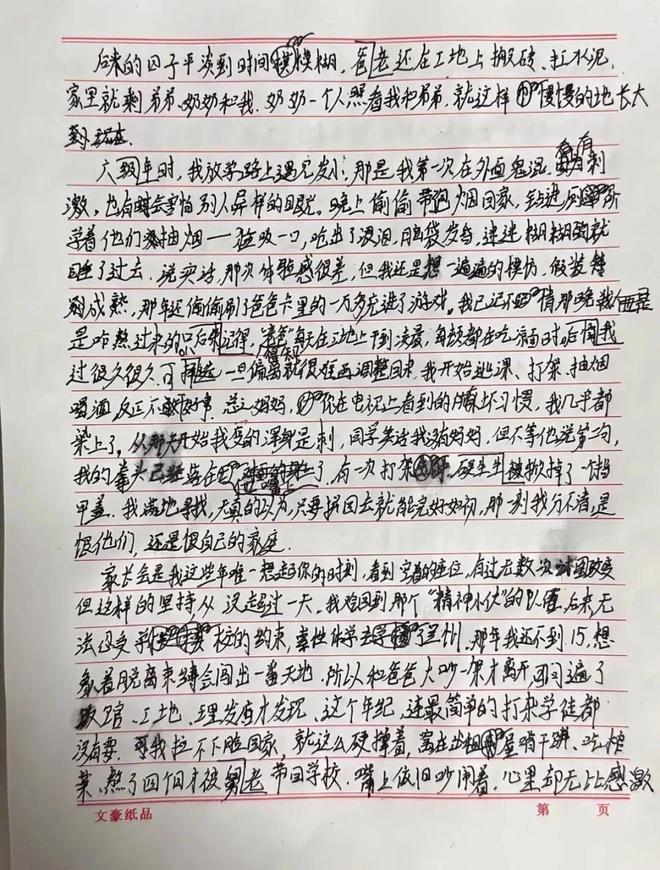 后来的日子平淡到时间模糊，爸爸还在工地上搬砖、扛水泥，
家里就剩弟弟、奶奶和我，奶奶一个人照看我和弟弟，就这样慢慢的地长大
到现在.
六年级时，我放学路上遇见发小，那是我第一次在外面鬼混，有刺
激，也有时会害怕别人异样的眼光。晚上偷偷带包烟回家，
学着他们抽烟——猛吸一口，呛出了眼泪，脑袋发昏，迷迷糊糊就
睡了过去，说实话，那次体验感很差，但我还是想一遍遍的模仿，假装特
别成熟，那年还偷偷刷了爸爸卡里的一万多充进了游戏。我已记不
是咋熬过来的，只记得，爸爸每天在工地上干到凌晨，每顿都在吃
过很久很久，可一旦偏离就很难再调整回来，我开始逃课、打架、抽烟
喝酒，反正不做好事，总之妈妈，你在电视上看到的坏习惯，我几乎都
染上了。从那天开始我变的浑身是刺，同学笑话我没有妈妈，但不等他说第二句，
我的拳头已经了，有一次打架，硬生生被掀掉了一个指
甲盖，我满地寻找，天真的以为，只要捡回去就能完好如初，那一刻我分不清，是
恨他们，还是恨自己的家庭.
家长会是我这些年唯一想起你的时刻，看到空着的座位，有过无数次改变
但这样的坚持从没超过一天，我忽回到那个“精神小伙”的队伍，后来，无
法忍受学校的约束，索性休学去了兰州，那年我还不到15，想
象着脱离束缚会闯出一番天地，所以和爸爸大吵一架才离开，可问遍了
饭馆、工地、理发店才发现，这个年纪，连最简单的打杂学徒都
没有要，可我拉不下脸回家，就这么硬撑着，窝在出租屋啃干饼、吃榨
菜，熬了四个月才被舅老带回学校，嘴上依旧吵闹着，心里却无比感激
文豪纸品
第 页